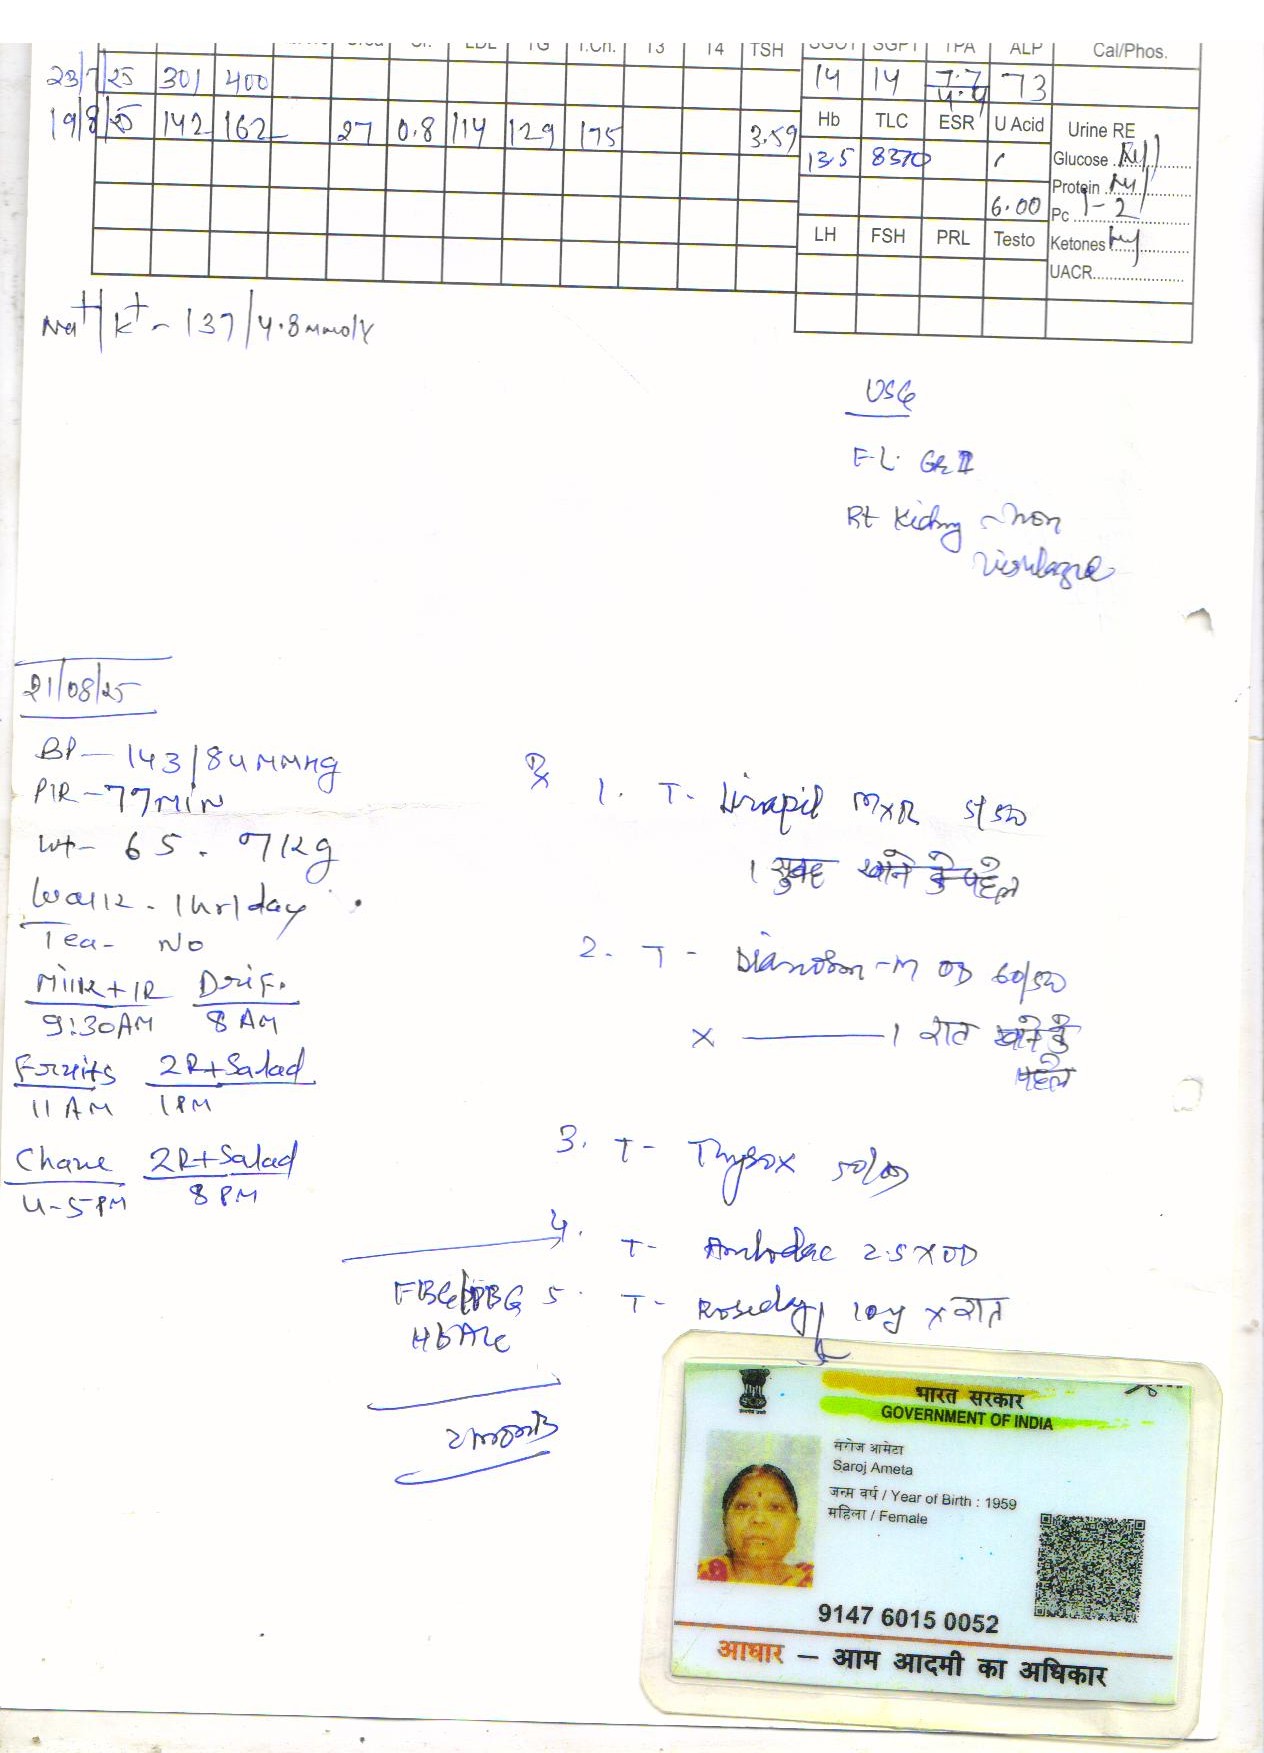 LDL TG T.Ch. T3 T4 TSH SGOT SGPT TPA ALP Cal/Phos.
23/7/25 301 400 14 14 7.7/4.4 73
19/8/25 142 162 27 0.8 114 129 175 3.59
Hb TLC ESR U Acid Urine RE
13.5 8370 6.00
Glucose .. Nil
Protein .. Nil
Pc .. 1-2
LH FSH PRL Testo
Ketones
UACR
Na+/K+ - 137/4.8 mmol/l
USG
F.L. Gr II
Rt Kidney - Non
21/08/25
BP - 143/84 MMHg
P/R - 77 MIN
Wt - 65.7 Kg
Walk - 1hr/day
Tea - No
Milk + 1R Dri F.
9:30 AM 8 AM
Fruits 2R+Salad
11 AM 1 PM
Chane 2R+Salad
4-5 PM 8 PM
Rx 1. T- MXR 5/50
1 सुबह खाने के पहले
2. T - -M OD 60/500
x 1 रात खाने के
पहले
3. T- Thyrox 50
4. T- Amlodac 2.5 x OD
5. T- Roseday 10mg x रात
FBG/PPBG
HbA1c
2 months
भारत सरकार
GOVERNMENT OF INDIA
सरोज आमेटा
Saroj Ameta
जन्म वर्ष / Year of Birth : 1959
महिला / Female
9147 6015 0052
आधार – आम आदमी का अधिकार